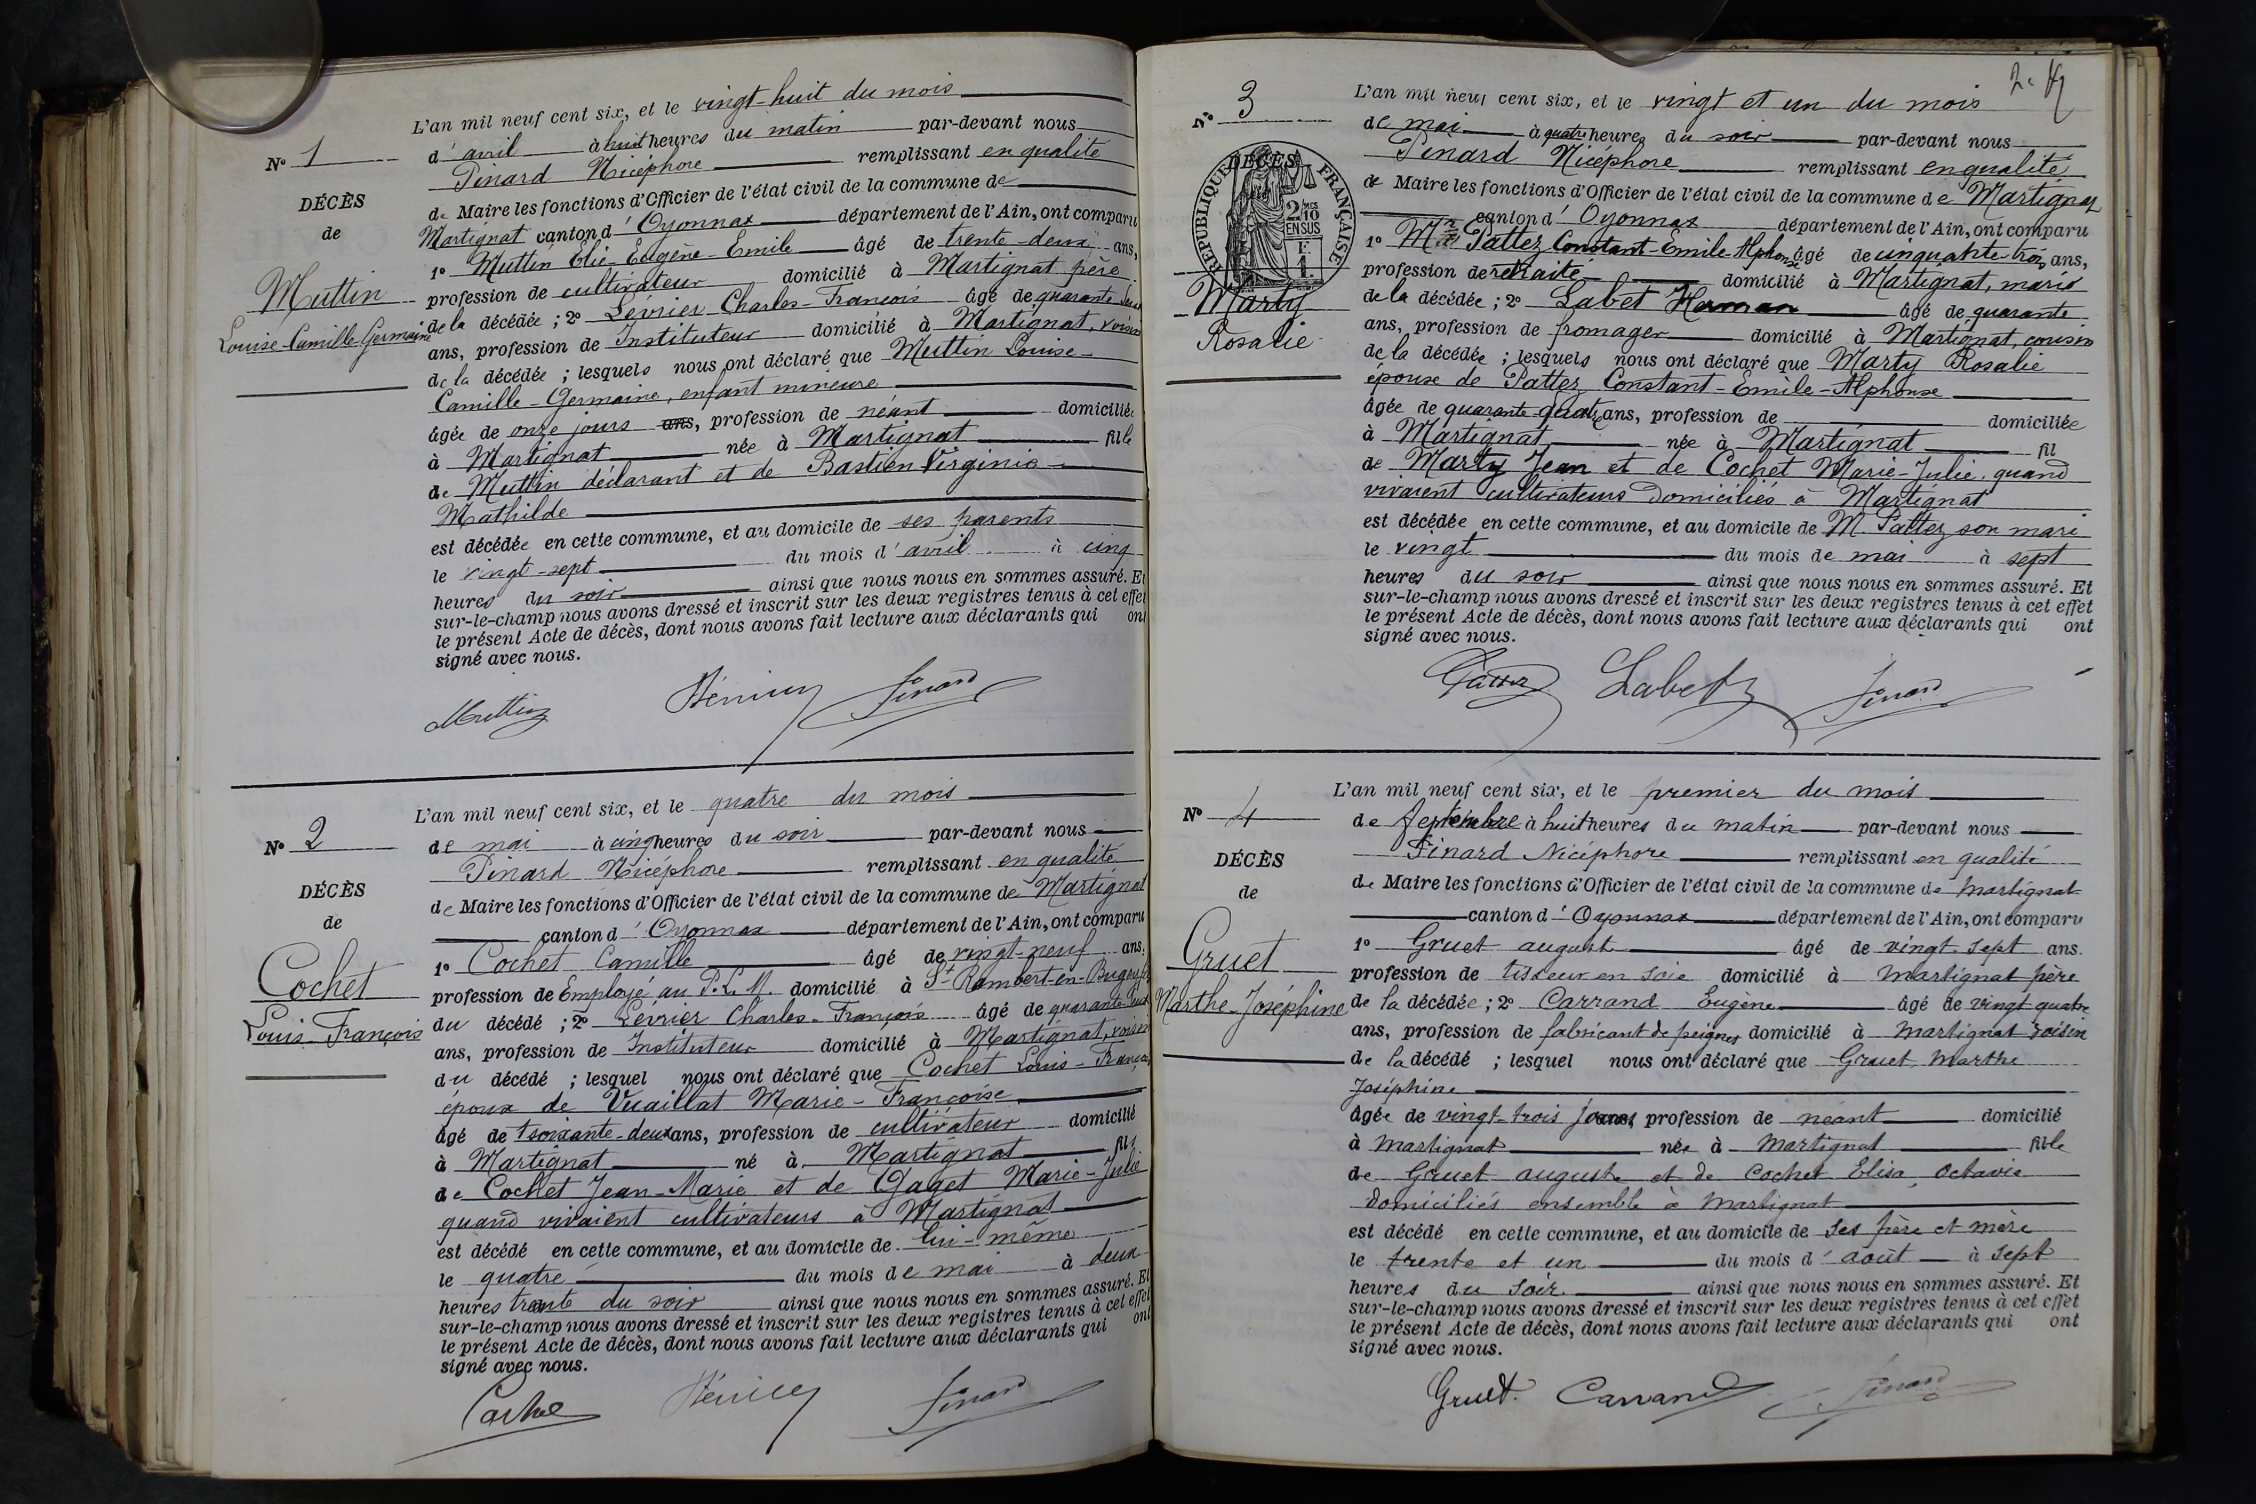 L'an mil neuf cent six, et le vingt-huit du mois
d'avril à huit heures du matin par-devant nous
Pinard Nicéphore remplissant en qualité
de Maire les fonctions d'Officier de l'état civil de la commune de
Martignat canton d'Oyonnax département de l'Ain, ont comparu
1º Muttin Elie-Eugène-Emile âgé de trente-deux ans,
profession de cultivateur domicilié à Martignat père
de la décédée ; 2º Charles-François âgé de quarante
ans, profession de Instituteur domicilié à Martignat, voisin
de la décédée ; lesquels nous ont déclaré que Muttin Louise-
Camille-Germaine, enfant mineure
âgée de onze jours ans, profession de néant domiciliée
à Martignat née à Martignat fille
de Muttin déclarant et de Bastien Virginie
Mathilde
est décédée en cette commune, et au domicile de ses parents
le vingt-sept du mois d'avril à cinq
heures du soir ainsi que nous nous en sommes assuré. Et
sur-le-champ nous avons dressé et inscrit sur les deux registres tenus à cet effet
le présent Acte de décès, dont nous avons fait lecture aux déclarants qui ont
signé avec nous.
Nº 1
DÉCÈS
de
Muttin
Louise-Camille-Germaine
Muttin Pinard
L'an mil neuf cent six, et le quatre du mois
de mai à cinq heures du soir par-devant nous
Pinard Nicéphore remplissant en qualité
de Maire les fonctions d'Officier de l'état civil de la commune de Martignat
canton d'Oyonnax département de l'Ain, ont comparu
1º Cochet Camille âgé de vingt-neuf ans,
profession de Employé au P.L.M. domicilié à St Rambert-en-Bugey, fils
du décédé ; 2º Levrier Charles-François âgé de quarante-deux
ans, profession de Instituteur domicilié à Martignat, voisin
du décédé ; lesquel nous ont déclaré que Cochet Louis-François
époux de Vuaillat Marie-Françoise
âgé de soixante-deux ans, profession de cultivateur domicilié
à Martignat né à Martignat fils
de Cochet Jean-Marie et de Gaget Marie-Julie
quand vivaient cultivateurs à Martignat
est décédé en cette commune, et au domicile de lui-même
le quatre du mois de mai à deux
heures trente du soir ainsi que nous nous en sommes assuré. Et
sur-le-champ nous avons dressé et inscrit sur les deux registres tenus à cet effet
le présent Acte de décès, dont nous avons fait lecture aux déclarants qui ont
signé avec nous.
Nº 2
DÉCÈS
de
Cochet
Louis-François
Pinard
L'an mil neuf cent six, et le vingt et un du mois
de mai à quatre heures du soir par-devant nous
Pinard Nicéphore remplissant en qualité
de Maire les fonctions d'Officier de l'état civil de la commune de Martignat
canton d'Oyonnax département de l'Ain, ont comparu
1º Pattez Constant-Emile-Alphonse âgé de cinquante trois ans,
profession de retraité domicilié à Martignat, mari
de la décédée ; 2º Labet Herman âgé de quarante
ans, profession de fromager domicilié à Martignat, cousin
de la décédée ; lesquels nous ont déclaré que Marty Rosalie
épouse de Pattez Constant-Emile-Alphonse
âgée de quarante quatre ans, profession de domiciliée
à Martignat née à Martignat fil
de Marty Jean et de Cochet Marie-Julie quand
vivaient cultivateurs domiciliés à Martignat
est décédée en cette commune, et au domicile de M. Pattez son mari
le vingt du mois de mai à sept
heures du soir ainsi que nous nous en sommes assuré. Et
sur-le-champ nous avons dressé et inscrit sur les deux registres tenus à cet effet
le présent Acte de décès, dont nous avons fait lecture aux déclarants qui ont
signé avec nous.
Nº 3
DÉCÈS
RÉPUBLIQUE FRANÇAISE
2/10 EN SUS
Marty
Rosalie
Labet Pinard
L'an mil neuf cent six, et le premier du mois
de septembre à huit heures du matin par-devant nous
Pinard Nicéphore remplissant en qualité
de Maire les fonctions d'Officier de l'état civil de la commune de Martignat
canton d'Oyonnax département de l'Ain, ont comparu
1º Gruet august âgé de vingt sept ans.
profession de tisseur en soie domicilié à Martignat père
de la décédée ; 2º Carrand Eugène âgé de vingt quatre
ans, profession de fabricant de peignes domicilié à Martignat voisin
de la décédé ; lesquel nous ont déclaré que Gruet Marthe
Joséphine
âgée de vingt-trois jours, profession de néant domicilié
à Martignat née à Martignat fille
de Gruet auguste et de Cochet Elisa Octavie
domiciliés ensemble à Martignat
est décédé en cette commune, et au domicile de ses père et mère
le trente et un du mois d'août à sept
heures du soir. ainsi que nous nous en sommes assuré. Et
sur-le-champ nous avons dressé et inscrit sur les deux registres tenus à cet effet
le présent Acte de décès, dont nous avons fait lecture aux déclarants qui ont
signé avec nous.
Nº 4
DÉCÈS
de
Gruet
Marthe-Joséphine
Gruet. Carrand Pinard